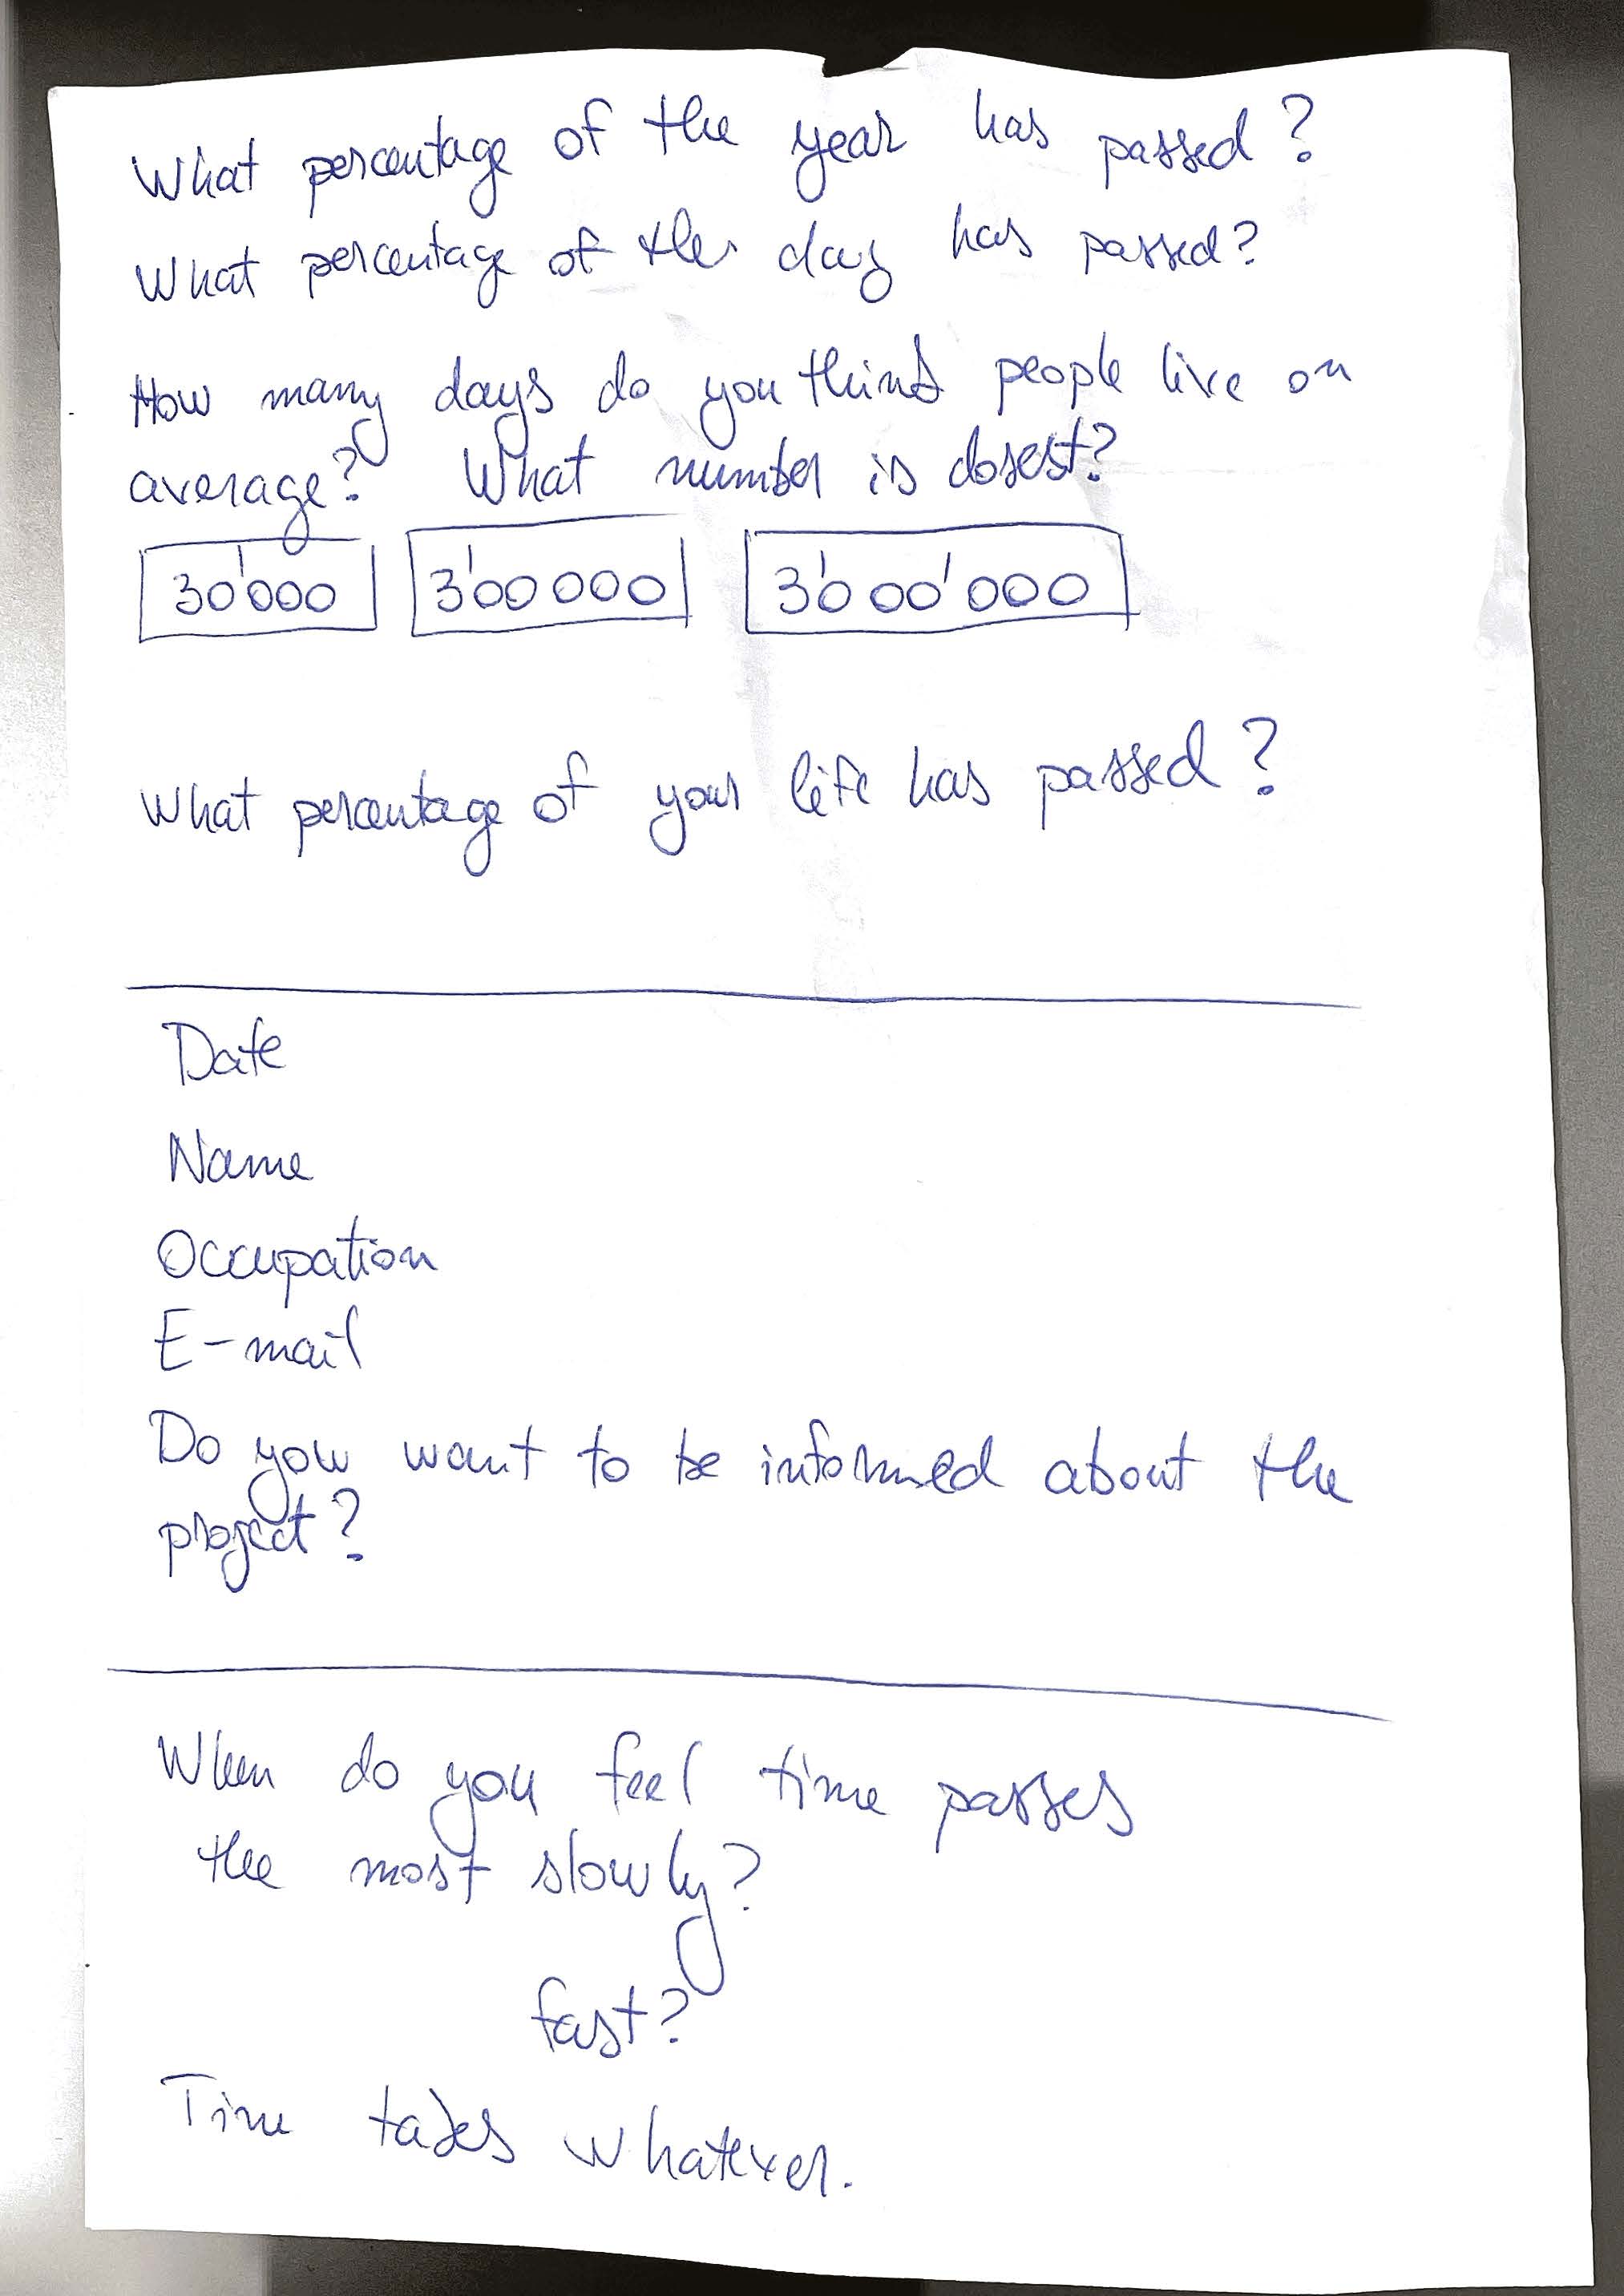 What percentage of the year has passed?
What percentage of the day has passed?
How many days do you think people live on
average? What number is closest?
30'000 3'00 000 3'0 00'000
What percentage of your life has passed?
Date
Name
Occupation
E-mail
Do you want to be informed about the
project?
When do you feel time passes
the most slowly?
fast?
Time takes whatever.